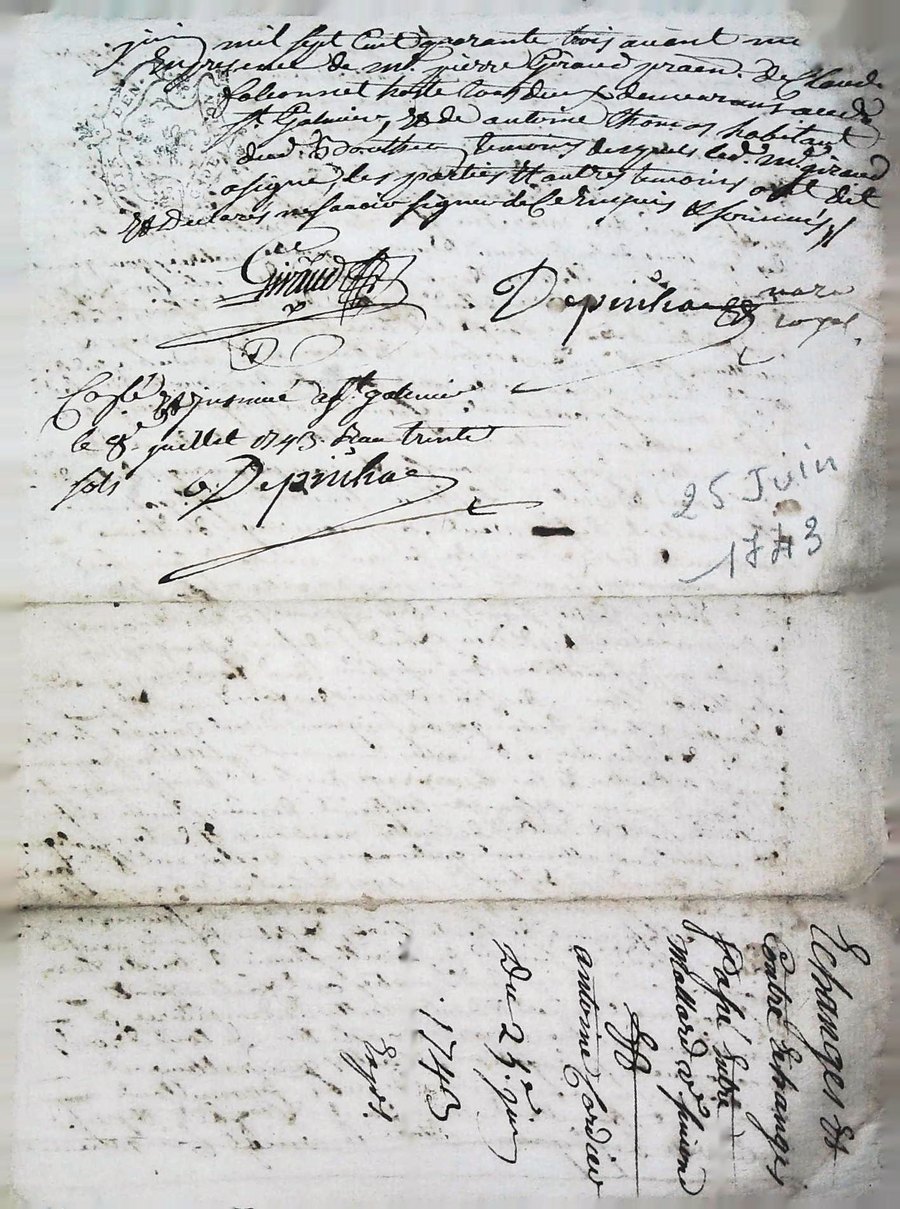 juin mil sept cent quarante trois avant mi
En presence de mr. pierre Giraud praen. de Claude
falconnet hoste tous deux demeurans aud.
St Galmier, et de antoine Thomas habitant
dud. temoins desquels led. mr. giraud
a signé, les parties et autres temoins ont dit
et declares ne scavoir signer de ce Enquis et sommés
Giraud
Depinhac nore
royal
Colé et insinué a St galmier
le 8e. juillet 1743. Recu trente
sols Depinhac
25 Juin
1743
Echanges et
Contre Echanges
passé Entre
Mallard
et
antoine Cordier
Du 25e. juin
1743
Expo.